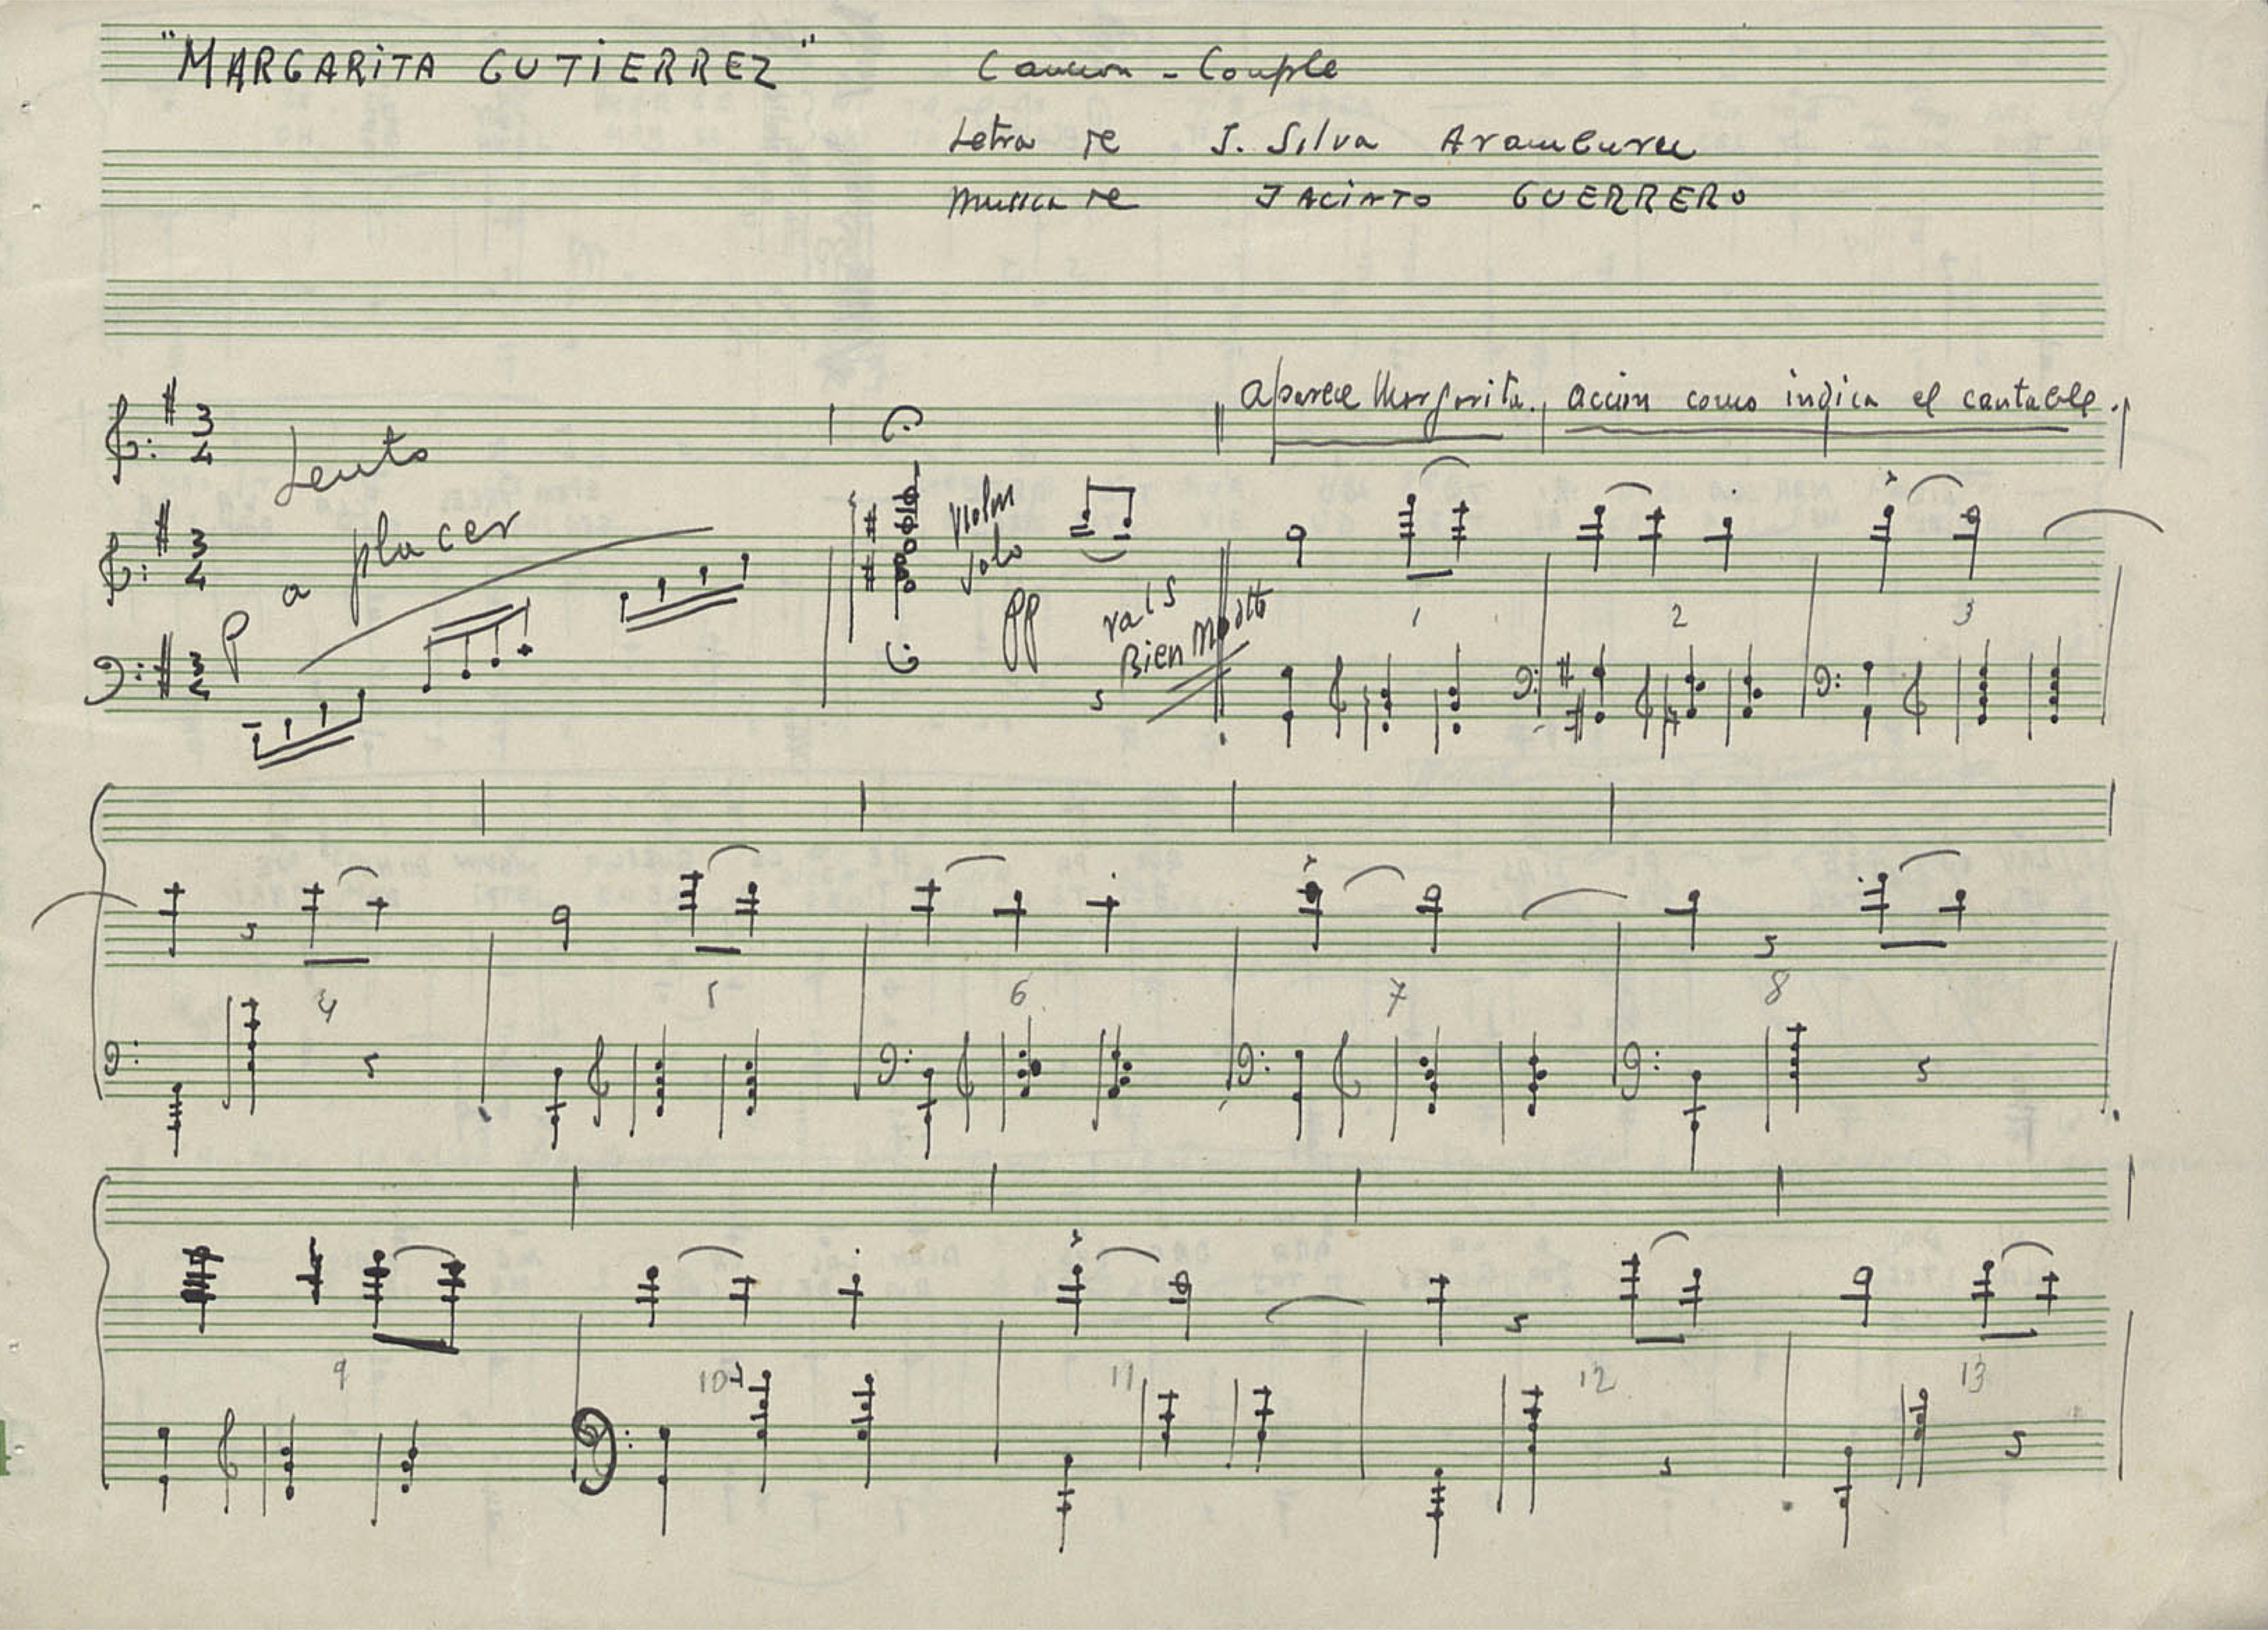 "MARGARITA GUTIERREZ" Cancion - Couple
Letra de J. Silva Aramburu
Musica de JACINTO GUERRERO
aparece Margarita. accion como indica el cantable.
3 4
Lento
3 4 a placer Violin solo
P pp vals Bien Modtto 1 2 3
3 4
4 5 6 7 8
9 10 11 12 13